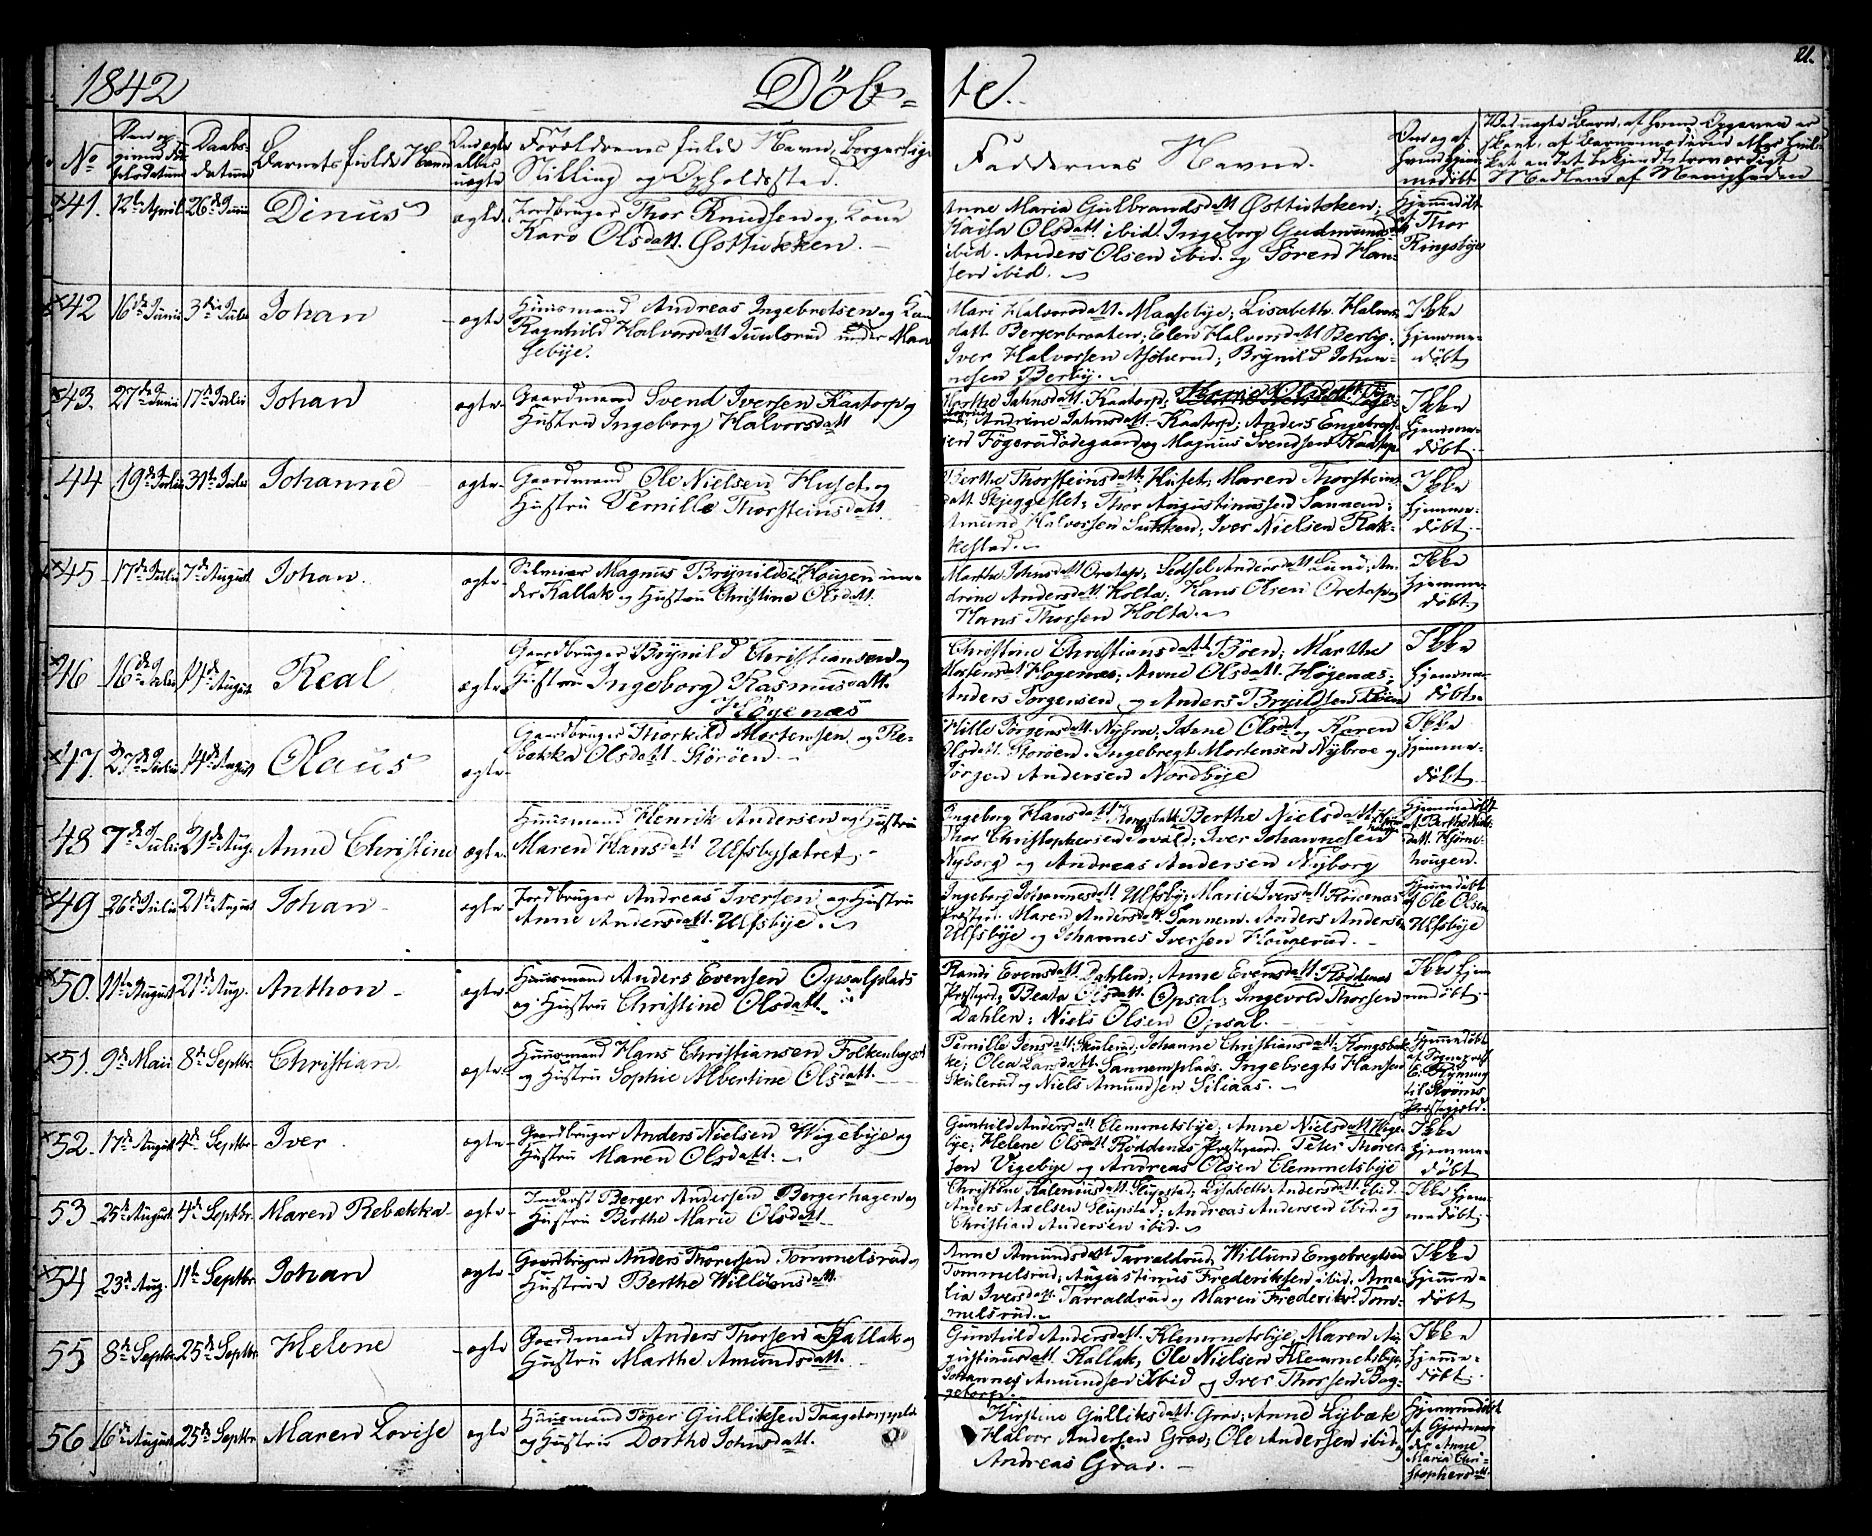 1842 Döb- te.
21.
No
Daabs-
datum
Barnets fulde Navn
Om ægte
eller
uægte
Forældrenes fulde Navn, Borgerlige
Stilling og Opholdssted.
Faddernes Navne.
41. 12te April 26de Junii Dinus ægte Jordbruger Thor Knudsen og Kone
Karo Olsdatt. Østtvikken.
Anne Maria Gulbrandsdatt Østtvikken;
Kaisa Olsdatt ibid. Ingeborg Gudmundsdatt
ibid. Anders Olsen ibid. og Søren Han-
sen ibid.
Hjemmedøbt
af Thor
Ringsbye
42 16de Junii 3die Julii Johan ægte Huusmand Andreas Ingebretsen og Kone
Ragnhild Halvorsdatt Juulsrud under Maa-
sebye.
Mari Halvorsdatt. Maasebye; Lisabeth Halvors-
datt. Bergerbraaten; Elen Halvorsdatt Berby;
Iver Halvorsen Askerud; Brynild Johan-
nesen Berby.
Ikke
hjemme-
døbt
43. 27de Junii 17de Julii Johan ægte Gaardmand Svend Iversen Kaatorp og
Hustru Ingeborg Halvorsdatt
Marthe Johnsdatt. Kaatorp;
Andrine Johnsdatt. Kaatorp; Anders Engebregt-
sen Fögerødødegaard og Magnus Svendsen Kaatorp
Ikke
hjemme-
døbt
44 19de Julii 31te Julii Johanne ægte Gaardmand Ole Nielsen Huset og
Hustru Pernille Thorsteinsdatt.
Berthe Thorsteinsdatt. Huset; Maren Thorsteins-
datt. Skjeggeslet; Thor Augustinussen Sannem;
Amund Halvorsen Sukken; Iver Nielsen Rak-
kestad.
Ikke
hjemme-
døbt
45 17de Julii 7de August Johan ægte Magnus Brynildsen Hougen un-
der Kallak og Hustru Christine Olsdatt.
Marthe Johnsdatt Oretap; Sedsel Andersdatt Lund; An-
drine Andersdatt. Holta; Hans Olsen Oretap og
Hans Thorsen Holta.
Ikke
hjemme-
døbt
46 16de Julii 14de August Real ægte Gaardbruger Brynild Christiansen og
Hustru Ingeborg Rasmusdatt.
Høgenæs
Christine Christiansdatt Böen; Marthe
Mortensdat Høgenæs; Anne Olsdatt. Høgenæs;
Anders Jørgensen og Anders Brynildsen Böen
Ikke
hjemme-
døbt
47. 27de Julii 14de August Olaus ægte Gaardbruger Thorkild Mortensen og Re-
bekka Olsdatt. Störöen.
Hille Jörgensdatt. Nybroe, Johne Olsdat og Karen
Olsdatt. Störöen. Ingebregt Mortensen Nybroe og
Jörgen Andersen Nordbye
Ikke
hjemme-
døbt
48 7de Julii 21de Aug. Anne Christine ægte Huusmand Henrik Andersen og Hustru
Maren Hansdatt Ulfsbysætret.
Ingeborg Hansdatt Berthe Nielsdatt
Thor Christophersen Iver Johannesen
Nyborg og Andreas Andersen Nyborg
Hjemmedøbt
af Berthe Niels-
datt. Hjörne-
hougen.
49 26de Julii 21de August Johan ægte Jordbruger Andreas Iversen og Hustru
Anne Andersdatt. Ulfsbye.
Ingeborg Johannesdatt Ulfsby; Marie Iversdatt. Rödenæs
Prestgrd. Maren Andersdatt. Sannem. Anders Andersen
Ulfsbye og Johannes Iversen Hougerud.
Hjemmedøbt
af Ole Olsen
Ulfsbye
50. 11te August 21de Aug. Anthon ægte Huusmand Anders Evensen Opsalplads
og Hustru Christine Olsdatt.
Randi Evensdatt. Dahlen; Anne Evensdatt. Röddenæs
Prestgrd; Beata Olsdatt. Opsal; Ingevold Thorsen
Dahlen; Niels Olsen Opsal.
Ikke hjem-
medøbt
51. 9de Maii 8de Septbr. Christian ægte Huusmand Hans Christiansen
og Hustru Sophie Albertine Olsdatt.
Pernille Jensdatt. Skulerud; Johanne Christiansdatt. Kongsbak-
ke; Olea Larsdatt. Sannemplads. Ingebregt Hansen
Skulerud og Niels Amundsen Siliaas.
Hjemmedøbt
til Strøms
Prestegjeld.
52. 17de August 4de Septbr. Iver ægte Gaardbruger Anders Nielsen Wigebye og
Hustru Maren Olsdatt.
Gunhild Andersdatt Clemmetsbye; Anne Nielsdatt. Wige-
bye; Helene Olsdatt Röddenæs Prestgaard. Peter Thorer-
sen Vigebye og Andreas Olsen Clemmetsbye
Ikke
hjemme-
døbt
53 25de August 4de Septbr. Maren Rebækka ægte Inderst Berger Andersen Bergerhagen og
Hustru Berthe Marie Olsdatt
Christine Slupstad; Lisabeth Andersdatt. ibid.
Anders Axelsen Slupstad; Andreas Andersen ibid. og
Christian Andersen ibid.
Ikke hjem-
medøbt
54 23de Aug. 11te Septbr. Johan ægte Gaardbruger Anders Thorersen Tommelsrud og
Hustrue Berthe Williumsdatt.
Anne Amundsdatt Tarraldrud, Willum Engebregtsen
Tommelsrud; Augustinus Frederiksen ibid. Ama-
lia Iversdatt. Tarraldrud og Maren Frederiksd. Tom-
melsrud.
Ikke
hjemme-
døbt
55 8de Septbr. 25de Septbr. Helene ægte Gaardmand Anders Thorsen Kallak og
Hustru Marthe Amundsdatt.
Gunhild Andersdatt. Klemmetsbye, Maren Au-
gustinusdatt. Kallak, Ole Nielsen Klemmetsbye,
Johannes Amundsen Ibid og Iver Thorsen Bag-
getorp.
Ikke
hjemme-
døbt
56 16de August 25de Septbr. Maren Lovise ægte Huusmand Gulliksen
og Hustrue Dorthe Johnsdatt.
Kirstine Gulliksdatt. Grav; Anne Lybæk
Halvor Andersen Grav; Ole Andersen ibid og
Andreas Grav.
Hjemmedøbt
af Gjordemo-
der Anne
Maria Chri-
stophersdatt.